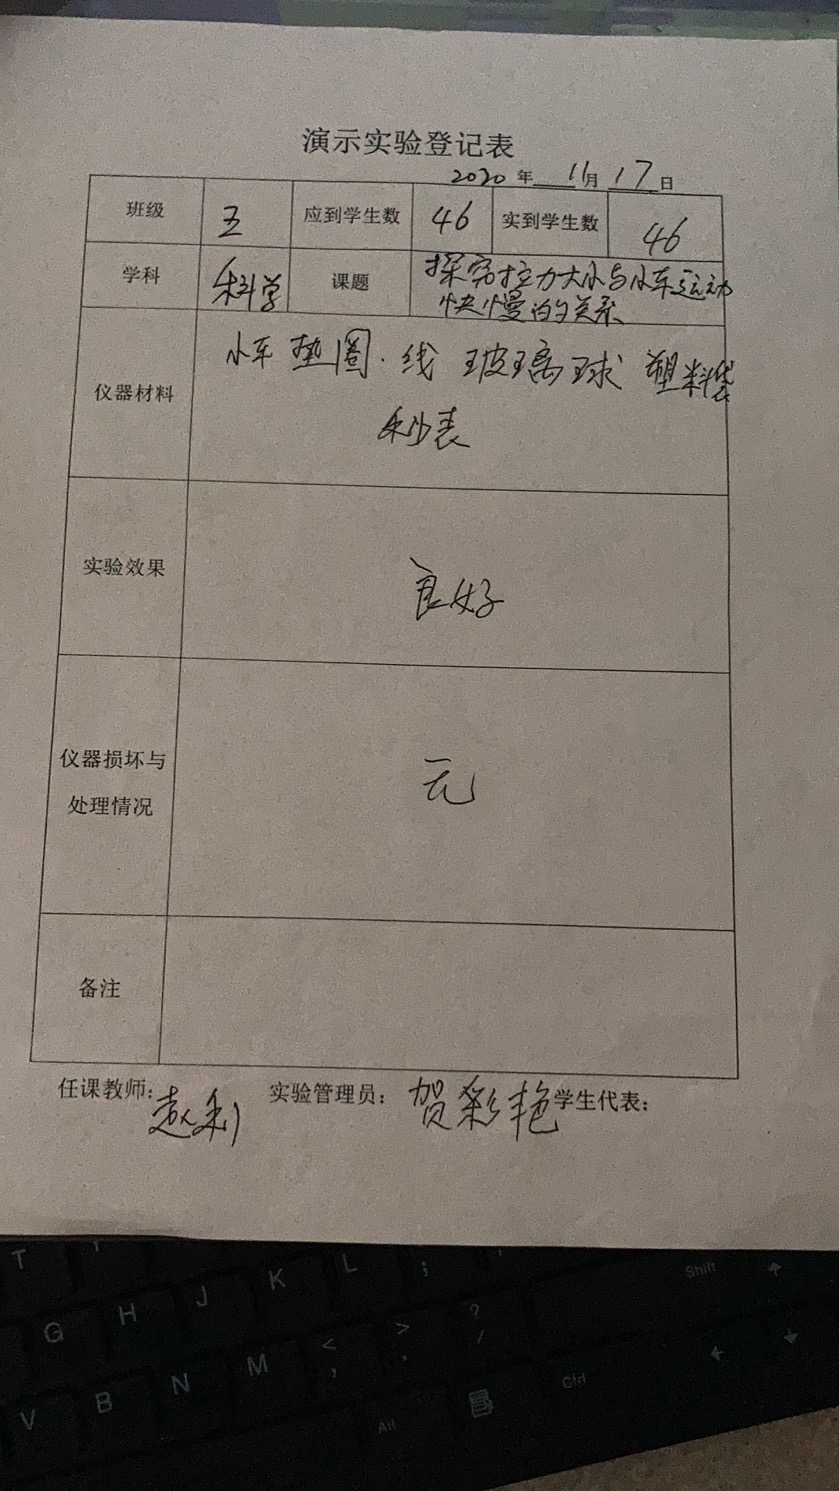 演示实验登记表
2020 年 11月 17日
班级 五 应到学生数 46 实到学生数 46
学科 科学 课题 探究拉力大小与小车运动
快慢的关系
仪器材料 小车 垫圈. 线 玻璃球 塑料袋
秒表
实验效果 良好
仪器损坏与
处理情况 无
备注
任课教师: 赵利 实验管理员: 贺彩艳 学生代表:
T
K L ;
G H J Shift
V B N M < , > . ? /
Alt Ctrl